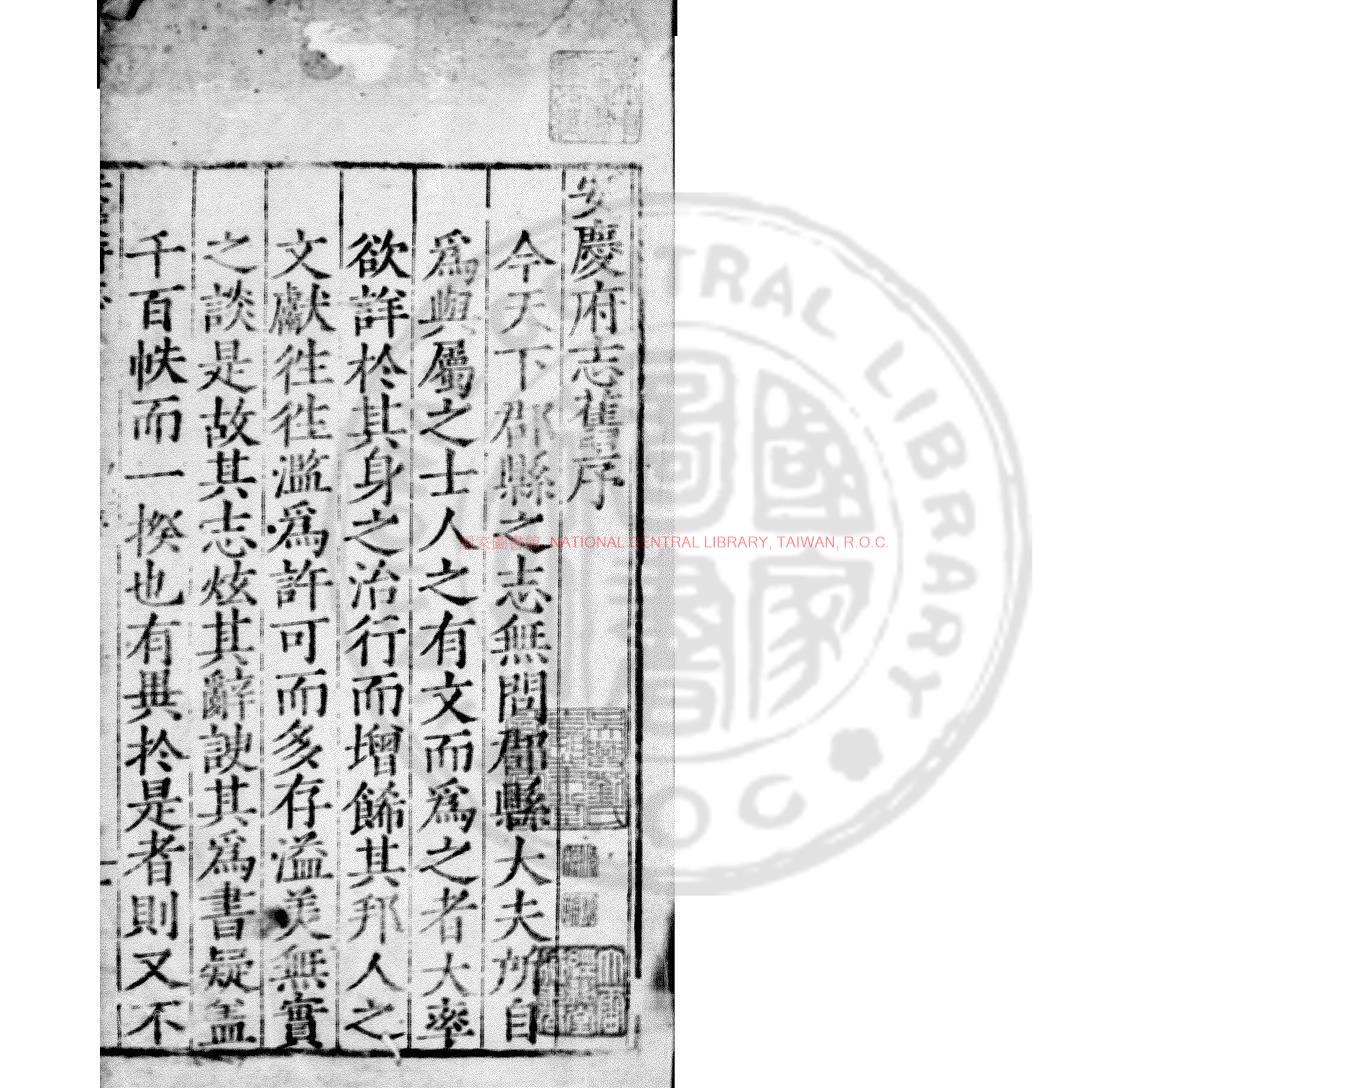 安慶府志舊序
今天下郡縣之志無問郡縣大夫所自
爲與屬之士人之有文而爲之者大率
欲詳於其身之治行而增餙其邦人之
文獻徃徃濫爲許可而多存溢美無實
之談是故其志炫其辭諛其爲書疑盖
千百帙而一揆也有異於是者則又不
國家圖書館 NATIONAL CENTRAL LIBRARY, TAIWAN, R.O.C.